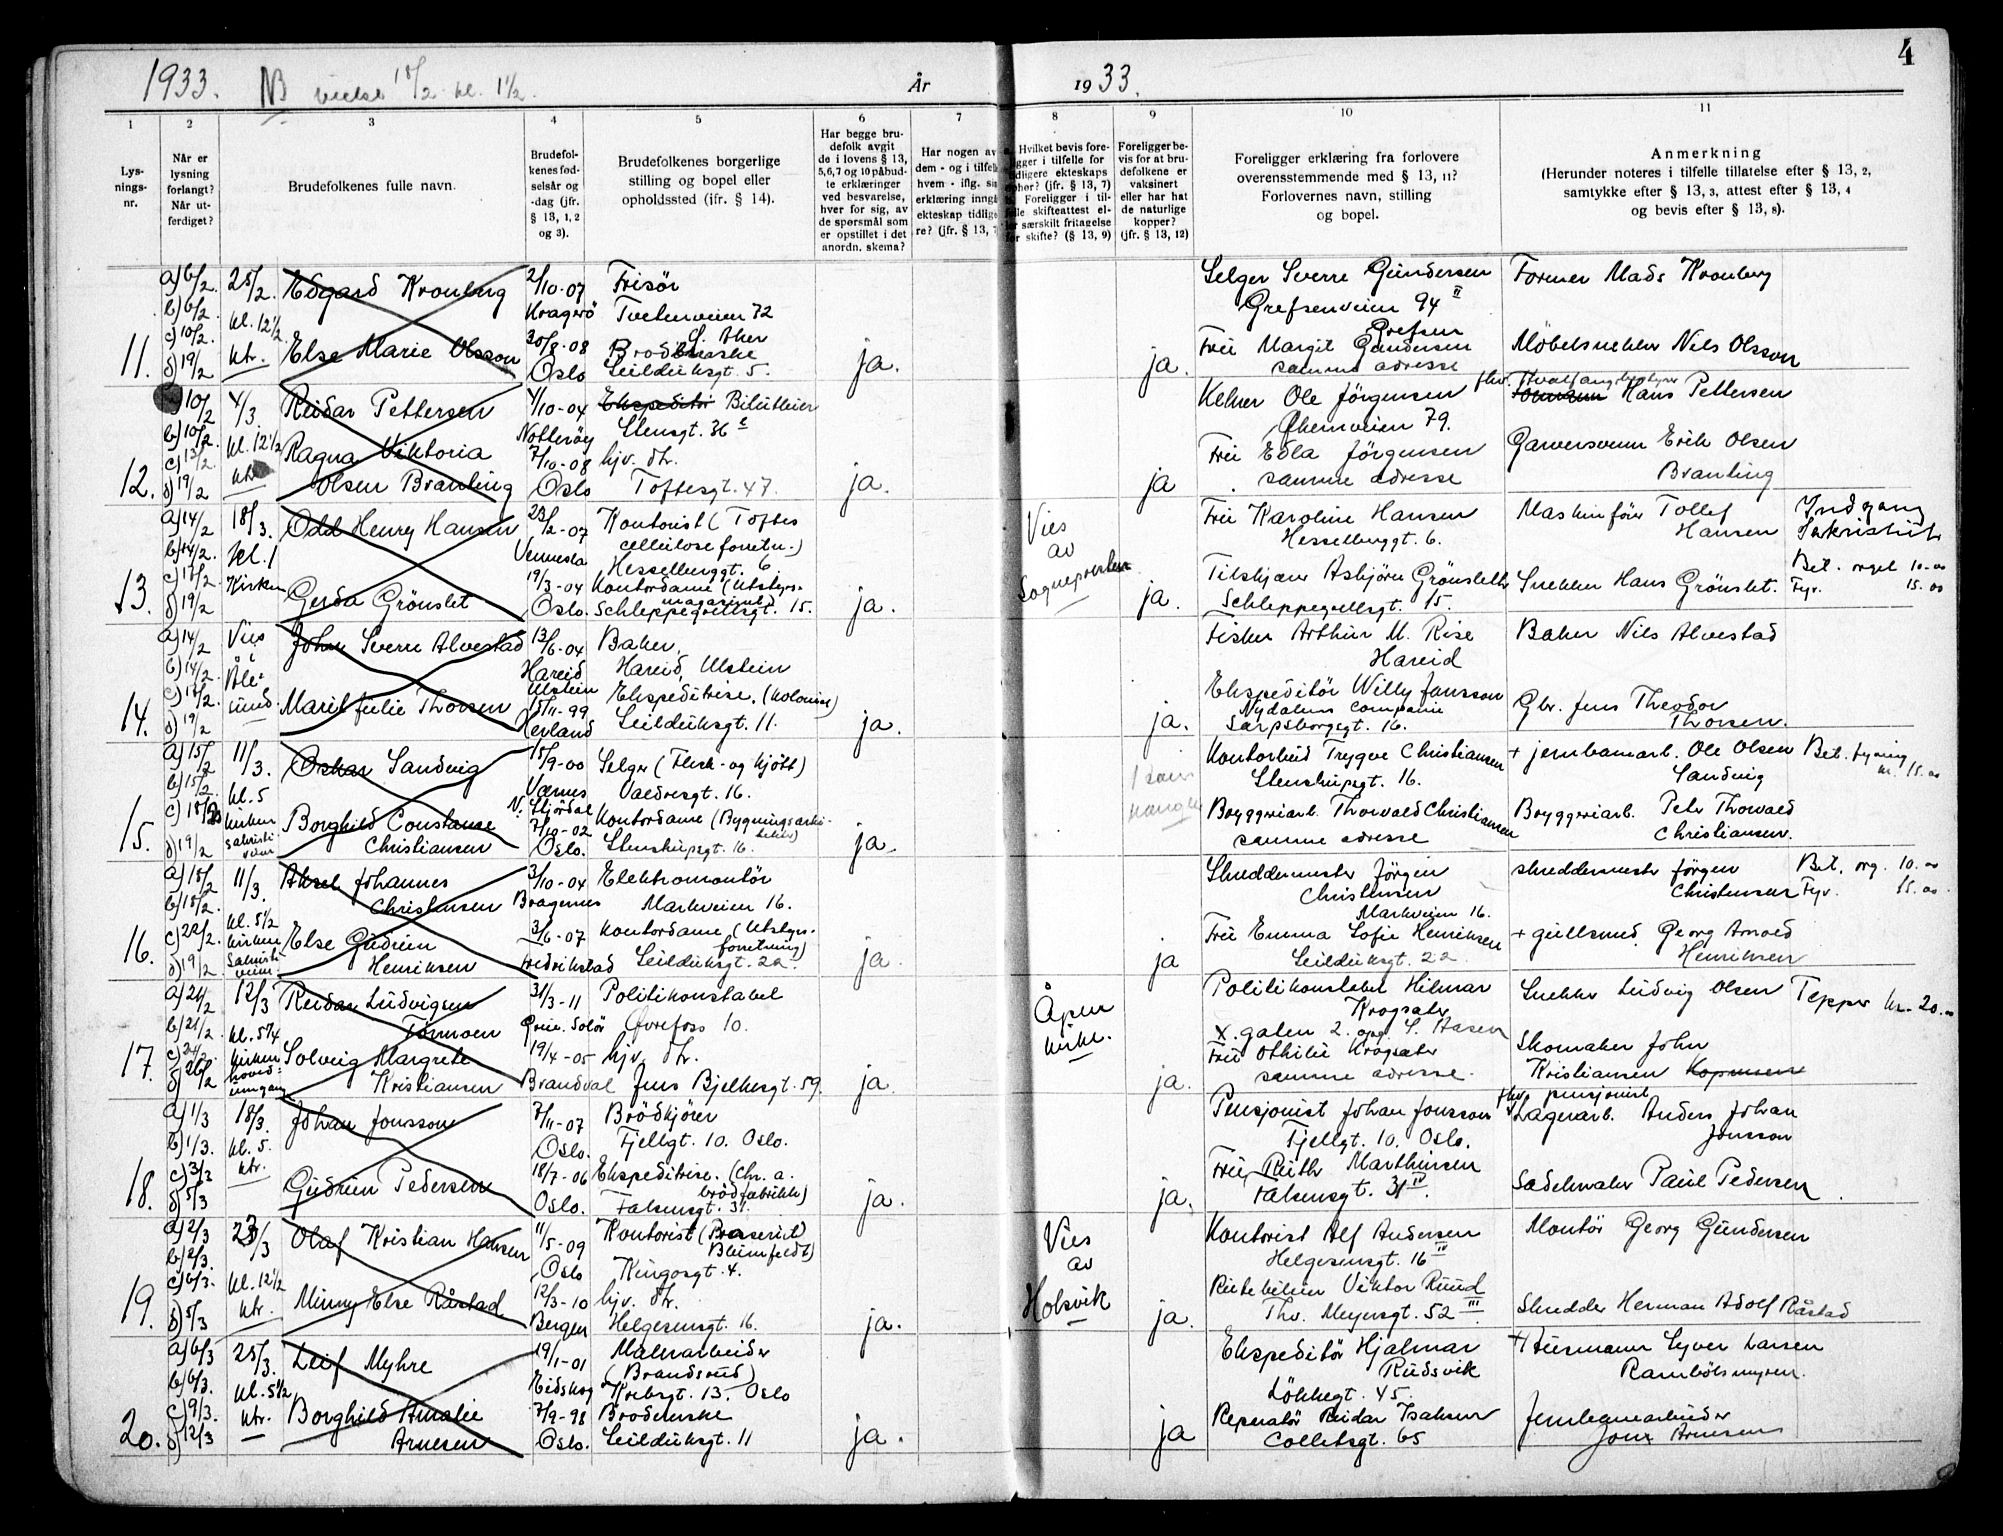 4
1933. NB vielse 18/2 kl. 1½.
År 1933.
1 2 3 4 5 6 7 8 9 10 11
Lys-
nings-
nr.
Når er
lysning
forlangt?
Når ut-
ferdiget?
Brudefolkenes fulle navn.
Brudefol-
kenes fød-
selsår og
-dag (jfr.
§ 13, 1, 2
og 3).
Brudefolkenes borgerlige
stilling og bopel eller
opholdssted (jfr. § 14).
Har begge bru-
defolk avgit
de i lovens § 13,
5,6,7 og 10 påbud-
te erklæringer
ved besvarelse,
hver for sig, av
de spørsmål som
er opstillet i det
anordn. skema?
Har nogen av
dem - og i tilfelle
hvem - iflg. sin
erklæring inngått
ekteskap tidlige-
re? (jfr. § 13, 7
Hvilket bevis fore-
ligger i tilfelle for
tidligere ekteskaps
ophør? (jfr. § 13, 7)
Foreligger i til-
felle skifteattest el-
ler særskilt fritagelse
for skifte? (§ 13, 9)
Foreligger be-
vis for at bru-
defolkene er
vaksinert
eller har hat
de naturlige
kopper?
(jfr. § 13, 12)
Foreligger erklæring fra forlovere
overensstemmende med § 13, 11?
Forlovernes navn, stilling
og bopel.
Anmerkning
(Herunder noteres i tilfelle tillatelse efter § 13, 2,
samtykke efter § 13, 3, attest efter § 13, 4
og bevis efter § 13, 8).
11.
a) 6/2
b) 6/2
c) 10/2
d) 19/2
25/2.
kl. 12½
ktr.
Edgard Kronberg
Else Marie Olsson
2/10-07
Kragerø
30/8-08
Oslo
Frisör
Tvetenveien 72
Ö. Aker
Seilduksgt. 5.
ja.
ja.
Selger Sverre Gundersen
Grefsenveien 94 II
Grefsen
Frü Margit Gundersen
samme adresse
Former Mads Kronberg
Möbelsnekker Nils Olsson
12.
10/2
b) 10/2
c) 13/2.
d) 19/2
4/3
kl. 12½
ktr
Reidar Pettersen
Ragna Viktoria
Olsen Branting
4/10-04
Nötteröy
7/10-08
Oslo
Ekspeditör Bilutleier
Stensgt. 36 c
hjv. dtr.
Toftesgt. 47.
ja.
ja
Kelner Ole Jörgensen
Økernveien 79.
Frü Edla Jörgensen
samme adresse
fhv. Hvalfangstbestyrer
Hans Pettersen
Garversvenn Erik Olsen
Branting
13.
a) 14/2
b) 14/2
c) 17/2.
d) 19/2
18/3.
kl. 1
Kirken
Odd Henry Hansen
Gerda Grönslet
23/2-07
Vennesla
19/3-04
Oslo.
Kontorist (Toftes
cellulose forretn.)
Hesselberggt. 6
Kontordame (Utstyrs-
magasinet)
Schleppegrellsgt. 15.
ja.
Vies
av
Sogneprsten
ja.
Frü Karoline Hansen
Hesselberggt. 6.
Tilskjærer Asbjörn Grönslett
Schleppegrellsgt. 15.
Maskinförer Tollef
Hansen
Snekker Hans Grönslet.
Indgang
Sakristiet
Bet. orgel 10.00
Fyr. 15.00
14.
a) 14/2
b) 14/2
c) 17/2.
d) 19/2
Vies
i
Åle-
sund.
Johan Sverre Alvestad
Marit Julie Thorsen
13/6-04
Hareid
Ulstein
15/11-99
Baker,
Hareid, Ulstein
Ekspeditrise. (kolonial)
Seilduksgt. 11.
ja.
ja.
Fisker Arthur M. Rise
Hareid
Ekspeditör Willy Jansson
Nydalens Compani
Sarpsborggt. 16.
Baker Nils Alvestad
Gbr. Jens Theodor
Thorsen.
15.
a) 15/2
b) 15/2
c) 18/2
d) 19/2
11/3.
kl. 5
kirken
sakristi-
veien
Oskar Sandvig
Borghild Constanse
Christiansen
15/9-00
Værnes
N. Stjördal
7/10-02
Oslo.
Selger (Flesk- og kjött)
Valdresgt. 16.
Kontordame (Bygningsarki-
tekter)
Stenstrupsgt. 16.
ja.
Kontorbud Trygve Christiansen
Stenstrupsgt. 16.
Bryggeriarb. Thorvald Christiansen
samme adresse
+ jernbanearb. Ole Olsen
Sandvig
Bryggeriarb. Petr Thorvald
Christiansen.
Bet. fyring
kr. 15.00
16.
a) 18/2
b) 18/2.
c) 22/2.
d) 19/2
11/3.
kl. 5½
kirken
Sakristi-
veien.
Aksel Johannes
Christensen
Else Gudrun
Henriksen
3/10-04
Bragernes
3/6-07
Fredrikstad
Elektromontör
Markveien 16.
Kontordame (Utstyrs-
forretning)
Seilduksgt. 22.
ja.
ja
Skreddermester Jörgen
Christensen
Markveien 16.
Frü Emma Sofie Henriksen
Seilduksgt. 22
skreddermester Jörgen
Christensen
+ gullsmed. Georg Arnold
Henriksen
Bet. org. 10.00
Fyr. 15.00.
17.
a) 21/2
b) 21/2
c) 24/2
d) 26/2
12/3
kl. 5¼
kirken
hoved-
inngang
Reidar Ludvigsen
Tormoen
Solveig Margrete
Kristiansen
31/3-11
Grue. Solör
19/4-05
Brandval
Politikonstabel
Øvrefoss 10.
hjv. dtr.
Jens Bjelkesgt. 59.
ja.
Åpen
kirke.
ja.
Politikonstabel Hilmar
Krogsæter
Frü Othilie Krogsæter
samme adresse.
Snekker Ludvig Olsen
Skomaker John
Kristiansen
Tepper kr. 20.00
18.
a) 1/3
b) 1/3.
c) 3/3
d) 5/3
18/3.
kl. 5.
ktr.
Johan Jonsson
Gudrun Pedersen
7/11-07
Oslo.
18/7-06
Oslo.
Brödkjörer
Fjellgt. 10. Oslo.
Ekspeditrise. (Chr. a.
brödfabrikk)
Falsensgt. 31.
ja.
ja.
Pensjonist Johan Jonsson
Fjellgt. 10. Oslo.
Frü Ruth Marthinsen
Falsensgt. 31 IV.
fhv. pensjonist
Lagerarb. Anders Johan
Jonsson
Sadelmaker Paul Pedersen
19.
a) 2/3
b) 2/3.
c) 6/3.
d) 5/3
23/3
kl. 12½
ktr.
Olaf Kristian Hansen
Minny Else Råstad
11/5-09
Oslo
12/3-10
Bergen
Kontorist (
Blumfeldt)
Kingosgt. 4.
hjv. dtr.
Helgesensgt. 16.
ja.
Vies
av
Holsvik
ja.
Kontorist Alf Andersen
Helgesensgt. 16 IV
Rutebileier Viktor Ruud
Thv. Meyersgt. 52 III.
Montör Georg Gundersen
Skredder Herman Adolf Råstad
20.
a) 6/3
b) 6/3.
c) 9/3.
d) 12/3
25/3.
kl. 5½
ktr.
Leif Myhre
Borghild Amalie
Arnesen
19/1-01
Eidskog
7/9-98
Oslo.
Malerarbeider
Krebsgt. 13. Oslo
Seilduksgt. 11
ja.
ja
Ekspeditör Hjalmar
Rudsvik
Lökkegt. 45.
Reperatör Reidar Isaksen
Colletsgt. 65
+ Husmann Syver Larsen
Rambölsmyren.
Arnesen